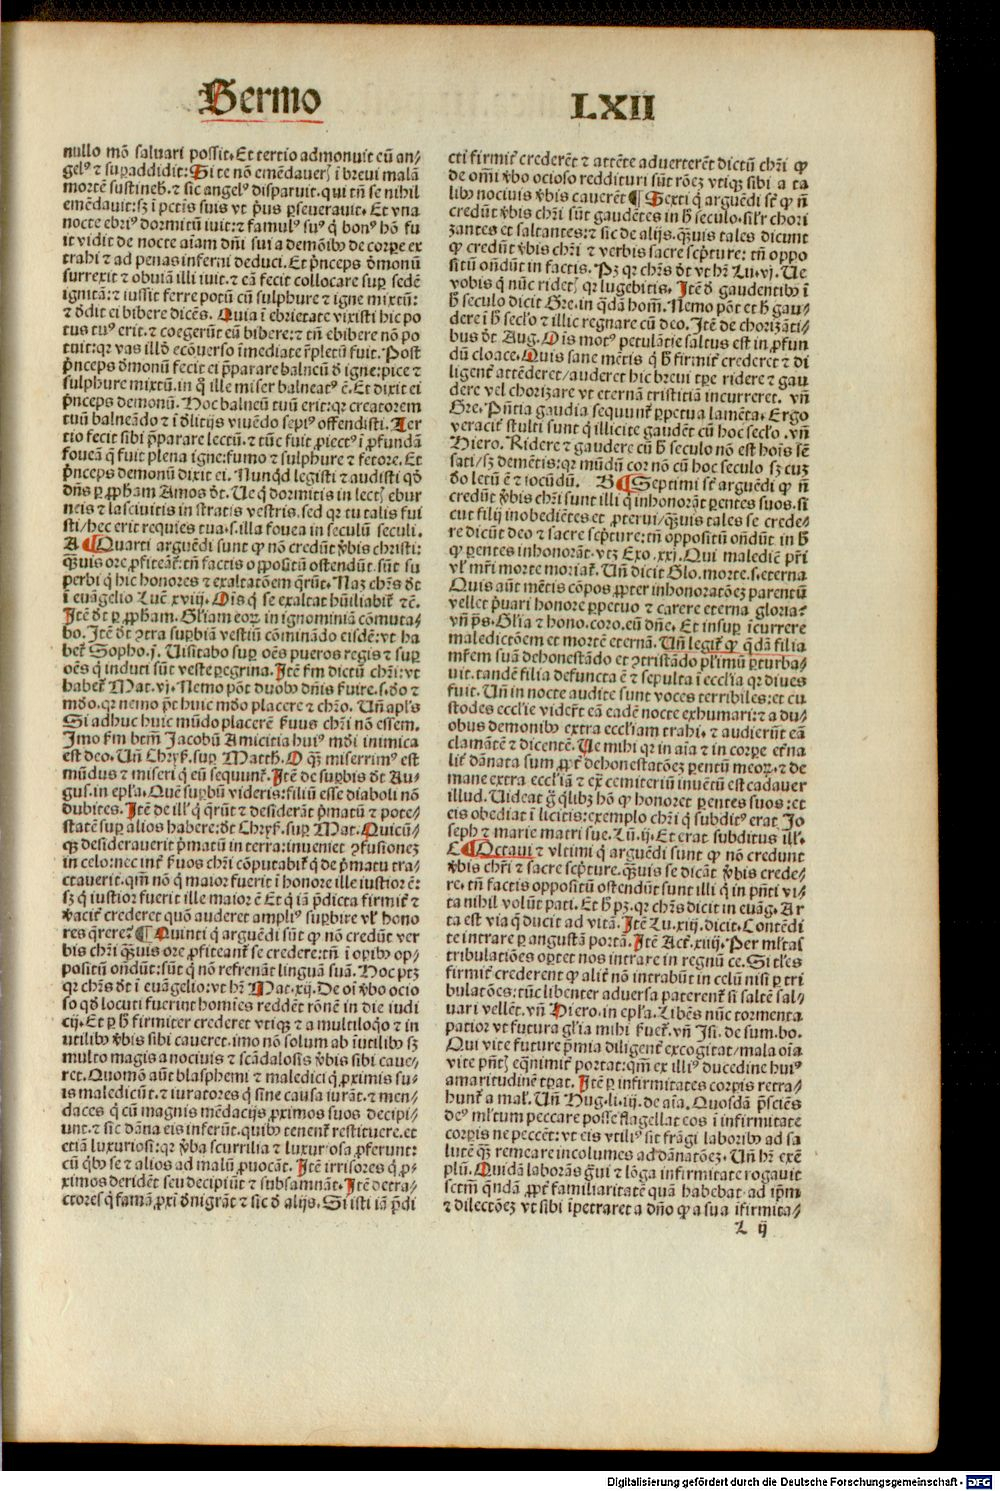 Sermo
LXII
nullo mõ saluari possit. Et tertio admonuit eũ an/
gelꝰ ⁊ supaddidit: Si te nõ emẽdauerꝭ ĩ breui malã
mortẽ sustineb̃. ⁊ sic angelꝰ disparuit. qui tñ se nihil
emẽdauit: sꝫ ĩ pctĩs suis vt p̃us ꝑseuerauit. Et vna
nocte ebriꝰ dormitũ iuit: ⁊ famulꝰ suꝰ q̃ bonꝰ hõ fu
it vidit de nocte aĩam dñi sui a demõibꝰ de corpe ex
trahi ⁊ ad penas inferni deduci. Et p̃nceps d̃monũ
surrexit ⁊ obuiã illi iuit: ⁊ eã fecit collocare sup sedẽ
ignitã: ⁊ iussit ferre potũ cũ sulphure ⁊ igne mixtũ:
⁊ d̃dit ei bibere dicẽs. Quia ĩ ebrietate vixisti hic po
tus tuꝰ erit. ⁊ coegerũt eũ bibere: ⁊ tñ ebibere nõ po
tuit: qꝛ vas illd̃ ecõuerso ĩmediate r̃pletũ fuit. Post
p̃nceps d̃monũ fecit ei p̃parare balneũ d̃ igne: pice ⁊
sulphure mixtũ. in q̃ ille miser balneatꝰ ẽ. Et dixit ei
p̃nceps demonũ. Hoc balneũ tuũ erit: qꝛ creatorem
tuũ balneãdo ⁊ ĩ d̃litijs viuẽdo sepiꝰ offendisti. Ter
tio fecit sibi p̃parare lectũ. ⁊ tũc fuit ꝓiectꝰ ĩ ꝓfundã
foueã q̃ fuit plena igne: fumo ⁊ sulphure ⁊ fetore. Et
p̃nceps demonũ dixit ei. Nunq̃d legisti ⁊ audisti qd̃
dñs ꝑ ꝓpham Amos d̃t. Ue q̃ dormitis in lectꝭ ebur
neis ⁊ lasciuitis in stratis vestris. sed qꝛ tu talis fui
sti/ hec erit requies tua. s. illa fouea in seculũ seculi.
A ¶ Quarti arguẽdi sunt ꝙ nõ credũt v̓bis christi:
q̃uis ore ꝓfiteãt̃: tñ factis oppositũ ostendũt. sũt su
perbi q̃ hic honores ⁊ exaltatõem q̃rũt. Naꝫ chr̃s d̃t
ĩ euãgelio Luẽ xviij. Ois q̃ se exaltat hũiliabit̃ ⁊ẽ.
Itẽ d̃t ꝑ ꝓpham. Gl̃iam eoꝝ in ignominiã cõmuta/
bo. Itẽ d̃t ↄ̃tra supbiã vestiũ cõminãdo eisdẽ: vt ha
bet̃ Sopho. j. Uisitabo sup oẽs pueros regis ⁊ sup
oẽs q̃ induti sũt veste peregrina. Itẽ fm dictũ chr̃i: vt
habet̃ Mat. vj. Nemo põt duobꝰ dñis f̃uire. s. d̃o ⁊
md̃o. qꝛ nemo p̃t huic md̃o placere ⁊ chr̃o. Uñ apl̃s
Si adhuc huic mũdo placerem f̃uus chr̃i nõ essem.
Imo fm btm̃ Jacobũ Amicitia huiꝰ md̃i inimica
est deo. Uñ Chryſ. sup Matth. O q̃ꝫ miserrimꝰ est
mũdus ⁊ miseri q̃ eũ sequunt̃. Itẽ de supbis d̃t Au/
gus. in epl̃a. Quẽ supbũ videris: filiũ esse diaboli nõ
dubites. Itẽ de illꝭ q̃ q̃rũt ⁊ desiderãt p̃matũ ⁊ pote/
statẽ sup alios habere: d̃t Chryſ. sup Mat. Quicũ/
qꝫ desiderauerit p̃matũ in terra: inueniet ↄ̃fusionez
in celo: nec int̃ f̃uos chr̃i cõputabit̃ q̃ de p̃matu tra/
ctauerit. qm̃ nõ q̃ maior fuerit ĩ honore ille iustior ẽ:
sꝫ q̃ iustior fuerit ille maior ẽ Et q̃ iã p̃dicta firmit̃ ⁊
v̓acit̃ crederet quõ auderet ampliꝰ supbire vl̃ hono
res q̃rere? ¶ Quinti q̃ arguẽdi sũt ꝙ nõ credũt ver
bis chr̃i q̃uis ore ꝓfiteant̃ se credere: tñ ĩ opibꝰ op/
positũ ondũt: sũt q̃ nõ refrenãt linguã suã. Hoc ptꝫ
qꝛ chr̃s d̃t ĩ euãgelio: vt hr̃ Mat. xij. De oĩ v̓bo ocio
so qd̃ locuti fuerint homĩes reddẽt rõnẽ in die iudi
cij. Et ꝑ h̃ firmiter crederet vtiqꝫ ⁊ a multiloq̃o ⁊ in
utilibꝰ v̓bis sibi caueret. imo nõ solum ab ĩutilibꝰ sꝫ
multo magis a nociuis ⁊ scãdalosis v̓bis sibi caue/
ret. Quomõ aũt blasphemi ⁊ maledici q̃ ꝓximis su/
is maledicũt. ⁊ iuratores q̃ sine causa iurãt. ⁊ men/
daces q̃ cũ magnis mẽdacijs ꝓximos suos decipi/
unt. ⁊ sic dãna eis inferũt. quibꝰ tenent̃ restituere. et
etiã luxuriosi: qꝛ v̓ba scurrilia ⁊ luxuriosa ꝓferunt:
cũ q̃bꝰ se ⁊ alios ad malũ ꝓuocãt. Itẽ irrisores q̃ ꝓ/
ximos deridẽt seu decipiũt ⁊ subsannãt. Itẽ detra/
ctores q̃ famã ꝓxĩ d̃nigrãt ⁊ sic d̃ alijs. Si isti iã p̃di
cti firmit̃ crederẽt ⁊ attẽte aduerterẽt dictũ chr̃i ꝙ
de omĩ v̓bo ocioso reddituri sũt rõez vtiqꝫ sibi a ta
libꝰ nociuis v̓bis cauerẽt ¶ Sexti q̃ arguẽdi st̃ ꝙ ñ
credũt v̓bis chr̃i sũt gaudẽtes in h̃ seculo. sil̃r chori
zantes et saltantes: ⁊ sic de alijs. q̃uis tales dicunt
ꝙ credũt v̓bis chr̃i ⁊ verbis sacre scp̃ture: tñ oppo
sitũ ondũt in factis. Pꝫ qꝛ chr̃s d̃t vt hr̃ Lu. vj. Ue
vobis q̃ nũc ridetꝭ qꝛ lugebitis. Itẽ d̃ gaudentibꝰ ĩ
h̃ seculo dicit Gre. in q̃dã hom̃. Nemo põt et h̃ gau/
dere ĩ h̃ secl̃o ⁊ illic regnare cũ deo. Itẽ de chorizãti/
bus d̃t Aug. Ois motꝰ petulãtie saltus est in ꝓfun
dũ cloace. Quis sane mẽtis q̃ h̃ firmit̃ crederet ⁊ di
ligent̃ attẽderet/ auderet hic breui tpe ridere ⁊ gau
dere vel chorizare vt eternã tristitiã incurreret. vñ
Gre. Pñtia gaudia sequunt̃ ꝑpetua lamẽta. Ergo
veracit̃ stulti sunt q̃ illicite gaudẽt cũ hoc secl̃o. vñ
Hiero. Ridere ⁊ gaudere cũ h̃ seculo nõ est hoĩs sẽ
sati/ sꝫ demẽtis: qꝛ mũdũ coꝛ nõ cũ hoc seculo sꝫ cuꝫ
d̃o letũ ẽ ⁊ iocũdũ. B ¶ Septimi st̃ arguẽdi ꝙ ñ
credũt v̓bis chr̃i sunt illi q̃ inhonorãt ꝑentes suos. si
cut filij inobediẽtes et ꝓterui/ q̃uis tales se crede/
re dicũt deo ⁊ sacre scp̃ture: tñ oppositũ ondũt in h̃
ꝙ ꝑentes inhonorãt. vtꝫ Exo. xxj. Qui malediẽ pr̃i
vl̃ mr̃i morte moriat̃. Uñ dicit Glo. morte. s. eterna
Quis aũt mẽtis cõpos ꝓpter inhonoratõez parentũ
vellet p̃uari honore ꝑpetuo ⁊ carere eterna gloria?
vñ ps̃. Gl̃ia ⁊ hono. coro. eũ dñe. Et insup ĩcurrere
maledictõem et mortẽ eternã. Uñ legit̃ ꝙ q̃dã filia
mr̃em suã dehonestãdo et ↄ̃tristãdo pl̃imũ ꝑturba/
uit. tandẽ filia defuncta ẽ ⁊ sepulta ĩ eccl̃ia qꝛ diues
fuit. Uñ in nocte audite sunt voces terribiles: et cu
stodes eccl̃ie vider̃t eã eadẽ nocte exhumari: ⁊ a du/
obus demonibꝰ extra eccl̃iam trahi. ⁊ audierũt eã
clamãtẽ ⁊ dicentẽ. Ue mihi qꝛ in aĩa ⁊ in corpe et̃na
lit̃ dãnata sum ꝓpt̃ dehonestatõez ꝑentũ meoꝝ. ⁊ de
mane extra eccl̃iã ⁊ ex̃ cemiteriũ inuẽtũ est cadauer
illud. Uideat g̃ q̃libꝫ hõ ꝙ honoret ꝑentes suos: et
eis obediat ĩ licitis: exemplo chr̃i q̃ subditꝰ erat Jo
seph ⁊ marie matri sue. Lũ. ij. Et erat subditus illꝭ.
C ¶ Octaui ⁊ vltimi q̃ arguẽdi sunt ꝙ nõ credunt
v̓bis chr̃i ⁊ sacre scp̃ture. q̃uis se dicãt v̓bis crede/
re. tñ factis oppositũ ostendũt sunt illi q̃ in pñti vi/
ta nihil volũt pati. Et h̃ pꝫ. qꝛ chr̃s dicit in euãg. Ar
ta est via q̃ ducit ad vitã. Itẽ Lu. xiij. dicit. Contẽdi
te intrare ꝑ angustã portã. Itẽ Act̃. xiiij. Per ml̃tas
tribulatiões optet nos intrare in regnũ ce. Si tl̃es
firmit̃ crederent ꝙ alit̃ nõ intrabũt in celũ nisi ꝑ tri
bulatões: tũc libenter aduersa paterent̃ si saltẽ sal/
uari vellẽt. vñ Hiero. in epl̃a. Libẽs nũc tormenta
patior vt futura gl̃ia mihi f̃uet̃. vñ Jsi. de sum. bo.
Qui vite future p̃mia diligent̃ excogitat/ mala oĩa
vite pñtꝭ eq̃nimit̃ portat: qm̃ ex illiꝰ ducedine huiꝰ
amaritudinẽ tꝑat. Itẽ ꝑ infirmitates corpis retra/
hunt̃ a mal̃. Uñ Hug. li. iij. de aĩa. Quosdã p̃sciẽs
deꝰ ml̃tum peccare posse flagellat eos ĩ infirmitate
corpis ne peccẽt: vt eis vtiliꝰ sit frãgi laboribꝰ ad sa
lutẽ q̃ꝫ remeare incolumes ad dãnatõez. Uñ h̃ exẽ
plũ. Quidã laborãs g̃ui ⁊ lõga infirmitate rogauit
sctm̃ q̃ndã ꝓpt̃ familiaritatẽ quã habebat ad ip̃m
⁊ dilectõez vt sibi ĩpetraret a dño ꝙ a sua ĩfirmita/
L ij
Digitalisierung gefördert durch die Deutsche Forschungsgemeinschaft - DFG